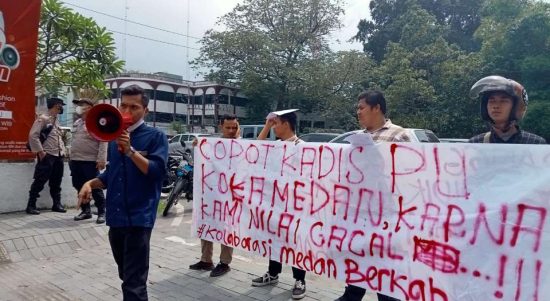 COPOT KADIS PU
KOTA MEDAN, KARNA
KAMI NILAI GAGAL ...!!!
#KOLABORASI MEDAN BERKAH